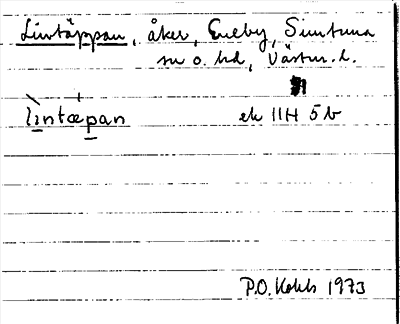 Lintäppan, åker, Eneby, Simtuna
sn o. hd, Västm. l.
lìntæpan ek 11H 5b
P.O. 1973